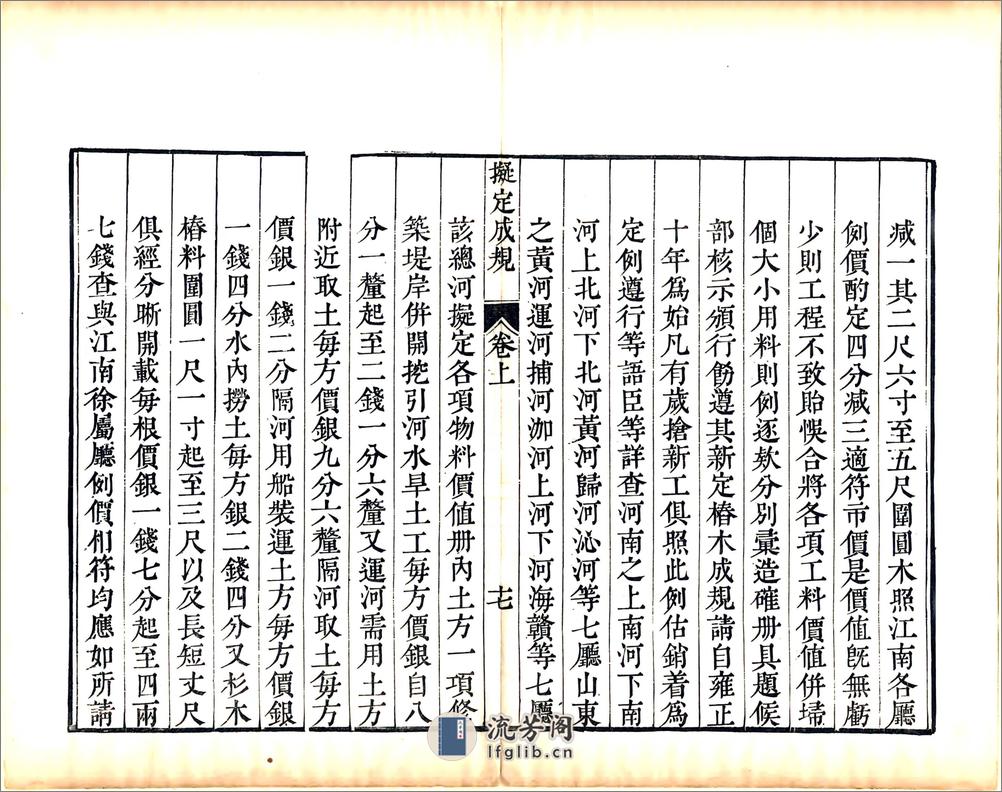 减一其二尺六寸至五尺圍圓木照江南各廳
例價酌定四分减三適符市價是價值旣無虧
少則工程不致貽悞合將各項工料價值併埽
個大小用料則例逐欵分別彙造確册具題候
部核示頒行飭遵其新定樁木成規請自雍正
十年爲始凡有歲搶新工俱照此例估銷着爲
定例遵行等語臣等詳查河南之上南河下南
河上北河下北河黃河歸河沁河等七廳山東
之黃河運河捕河泇河上河下河海贛等七廳
擬定成規 卷上 十七
該總河擬定各項物料價值册內土方一項修
築堤岸併開挖引河水旱土工每方價銀自八
分一釐起至二錢一分六釐又運河需用土方
附近取土每方價銀九分六釐隔河取土每方
價銀一錢二分隔河用船裝運土方每方價銀
一錢四分水內撈土每方銀二錢四分又杉木
樁料圍圓一尺一寸起至三尺以及長短丈尺
俱經分晰開載每根價銀一錢七分起至四兩
七錢查與江南徐屬廳例價相符均應如所請
流芳阁
lfglib.cn